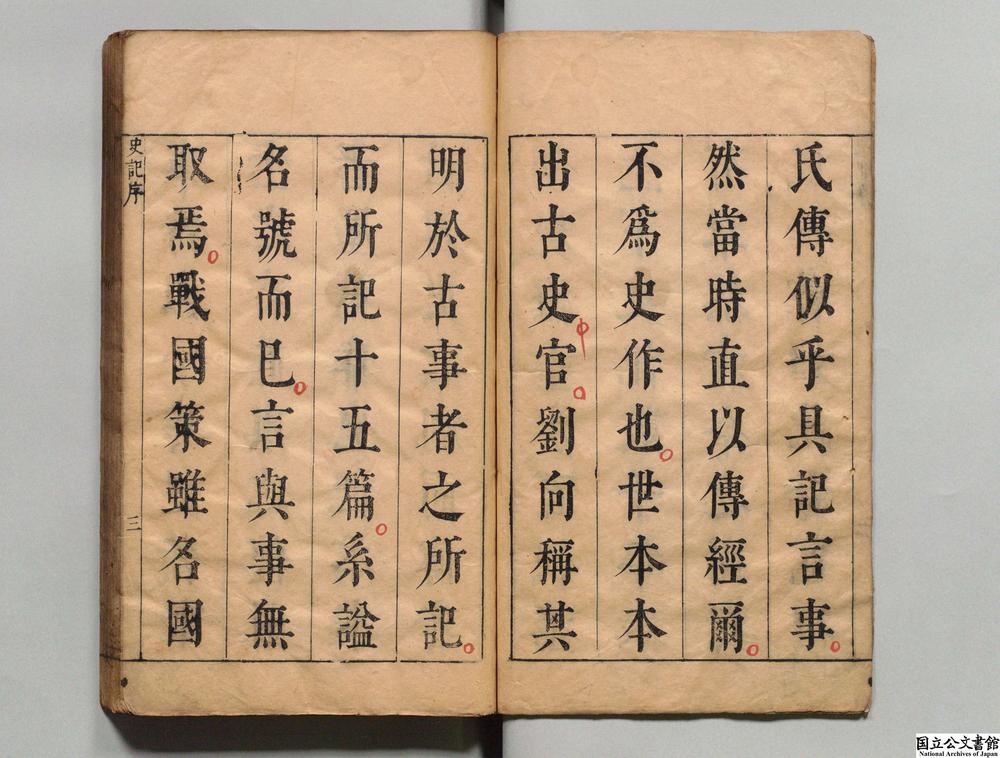 氏傳似乎具記言事
然當時直以傳經爾
不爲史作也世本本
出古史官劉向稱其
明於古事者之所記
而所記十五篇系諡
名號而已言與事無
取焉戰國策雖名國
史記序
三
国立公文書館
National Archives of Japan